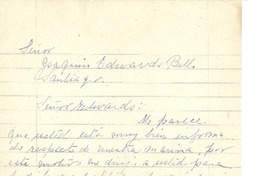 Señor
Joaquín Edwards Bello
Santiago.
Señor Edwards:
Me parece
que usted está muy bien informa-
do respecto de nuestra marina, por
este motivo me dirijo a usted para